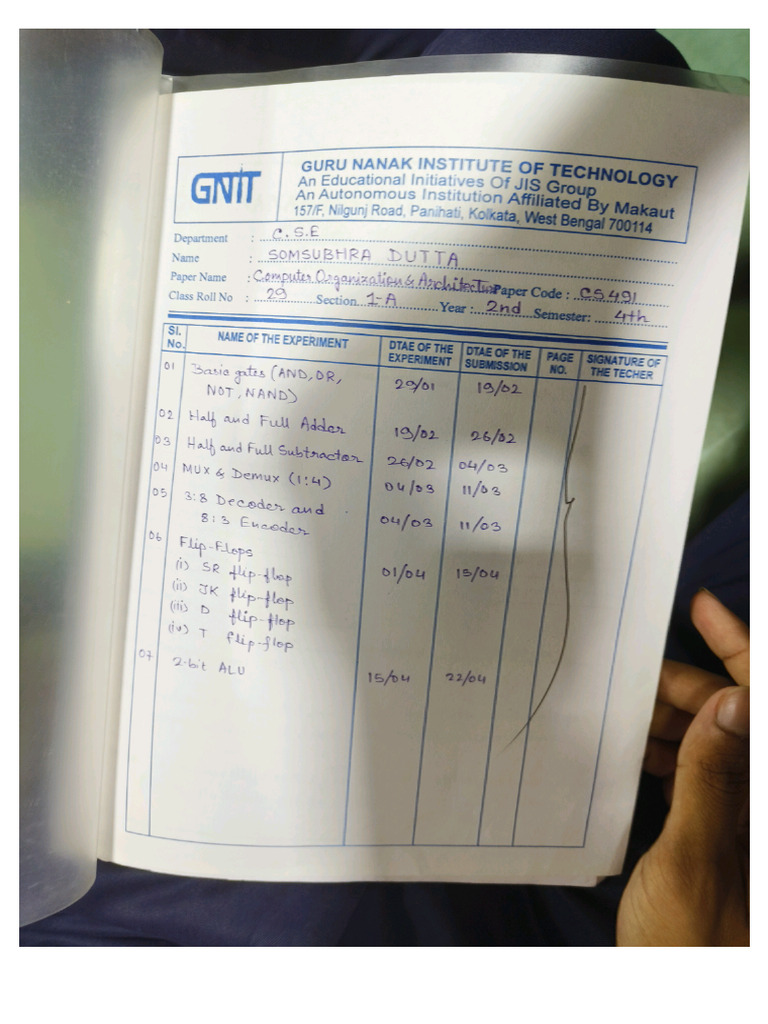 GNIT
GURU NANAK INSTITUTE OF TECHNOLOGY
An Educational Initiatives Of JIS Group
An Autonomous Institution Affiliated By Makaut
157/F, Nilgunj Road, Panihati, Kolkata, West Bengal 700114
Department : C.S.E
Name : SOMSUBHRA DUTTA
Paper Name : Computer Organization & Architecture Paper Code : CS491
Class Roll No : 29 Section 1-A Year : 2nd Semester: 4th
Sl. No. NAME OF THE EXPERIMENT DTAE OF THE EXPERIMENT DTAE OF THE SUBMISSION PAGE NO. SIGNATURE OF THE TECHER
01 Basic gates (AND, OR, NOT, NAND) 29/01 19/02
02 Half and Full Adder 19/02 26/02
03 Half and Full Subtractor 26/02 04/03
04 MUX & Demux (1:4) 04/03 11/03
05 3:8 Decoder and 8:3 Encoder 04/03 11/03
06 Flip-Flops
(i) SR flip-flop 01/04 15/04
(ii) JK flip-flop
(iii) D flip-flop
(iv) T flip-flop
07 2-bit ALU 15/04 22/04